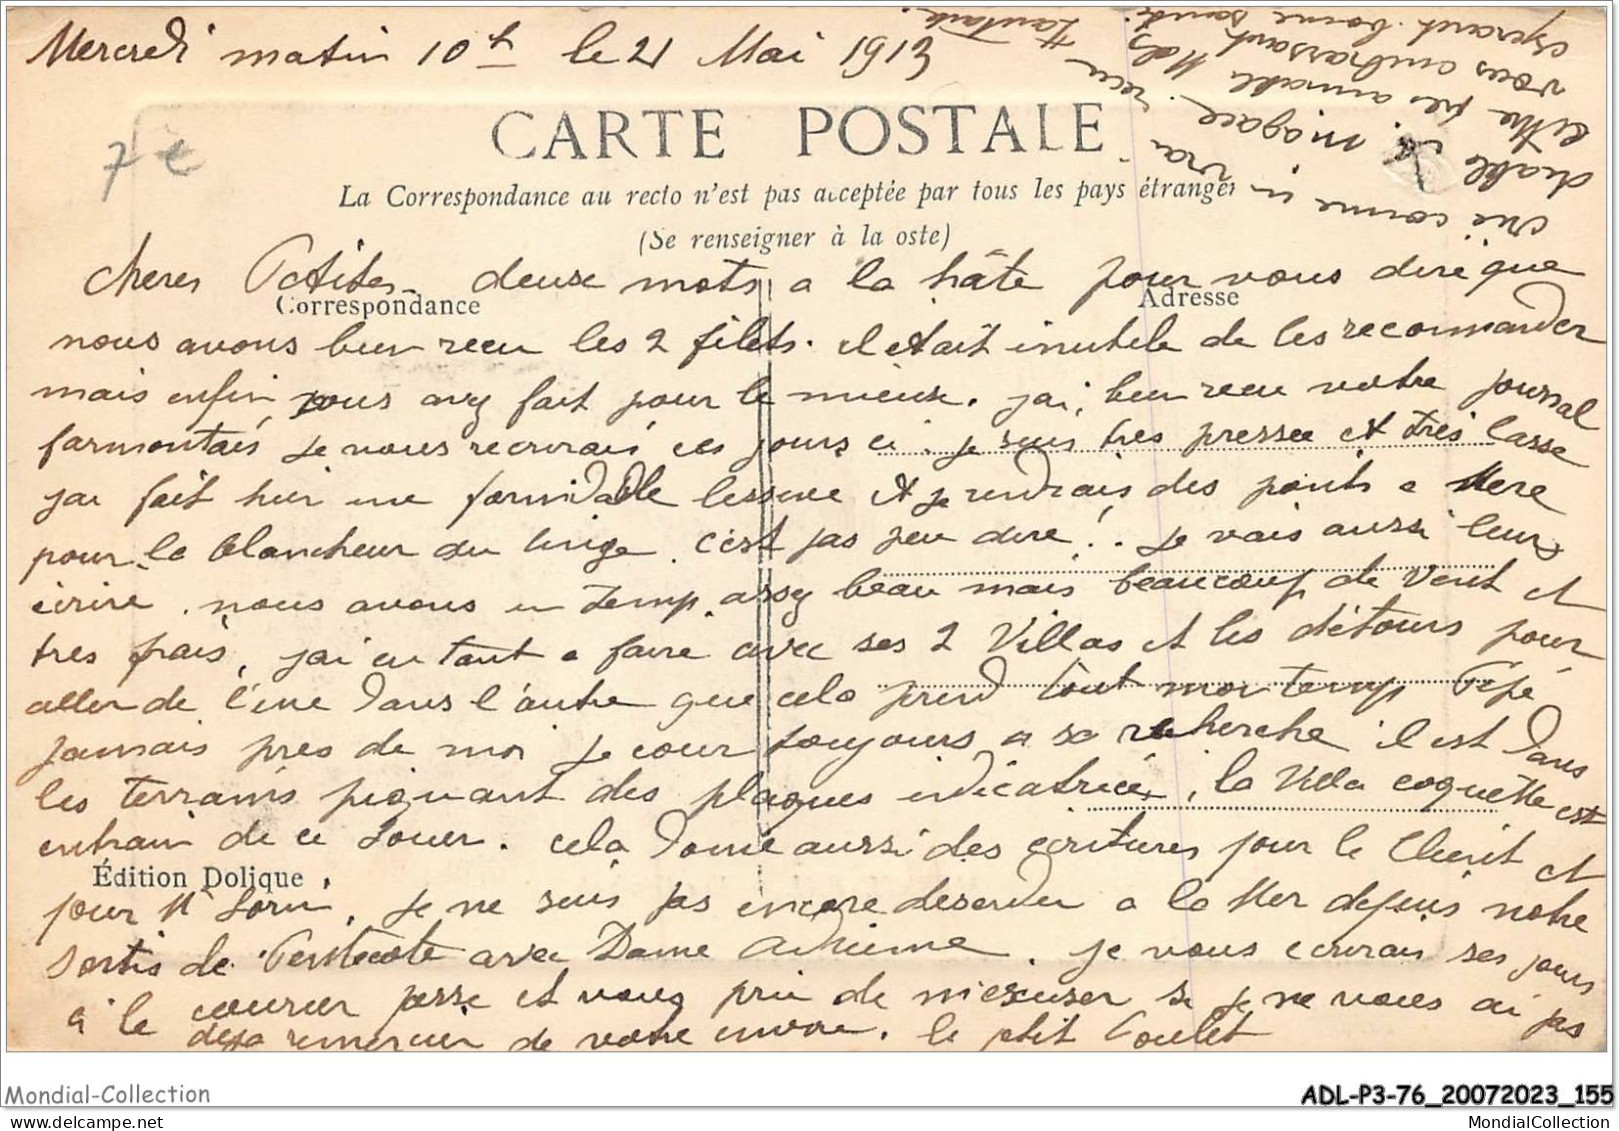 Mercredi matin 10h le 21 Mai 1913
7 €
CARTE POSTALE
La Correspondance au recto n'est pas acceptée par tous les pays étranger
(Se renseigner à la oste)
chères Petites. deux mots a la hâte pour vous dire que
Correspondance
Adresse
nous avons bien recu les 2 filets. il etait inutile de les recommander
mais enfin, vous avez fait pour le mieux. jai, bien recu votre journal
farmontais, je vous recrirais ces jours ci. je suis tres pressee et très lasse
jai fait hier une formidable lessive et je rendrais des points a Mere
pour la blancheur du linge. c'est pas peu dire! . je vais aussi leurs
écrire. nous avons un temp. assez beau mais beaucoup de Vent et
tres frais, jai eu tant a faire avec ses 2 Villas et les détours pour
aller de l'une dans l'autre que cela prend tout mon temp Pépé
jamais pres de moi je cour toujours a sa recherche il est dans
les terrains piquant des plaques indicatrices, la Villa coquette est
entrain de ce louer. cela donne aussi des écritures pour le Client et
Édition Dolique
pour Mr Lorin. je ne suis pas encore descendu a la Mer depuis notre
sortis de Pentecote avec Dame Adrienne. je vous écrirais ses jours
à la courier passe et vous prie de m'excuser si je ne vous ai pas
deja remercier de votre envoie. le petit Poulet
crié comme un vrai
diable
lettre pas aimable
vous embrassant
esperant bonne santé.
Mondial-Collection
ADL-P3-76_20072023_155
www.mondial-collection.com
MondialCollection